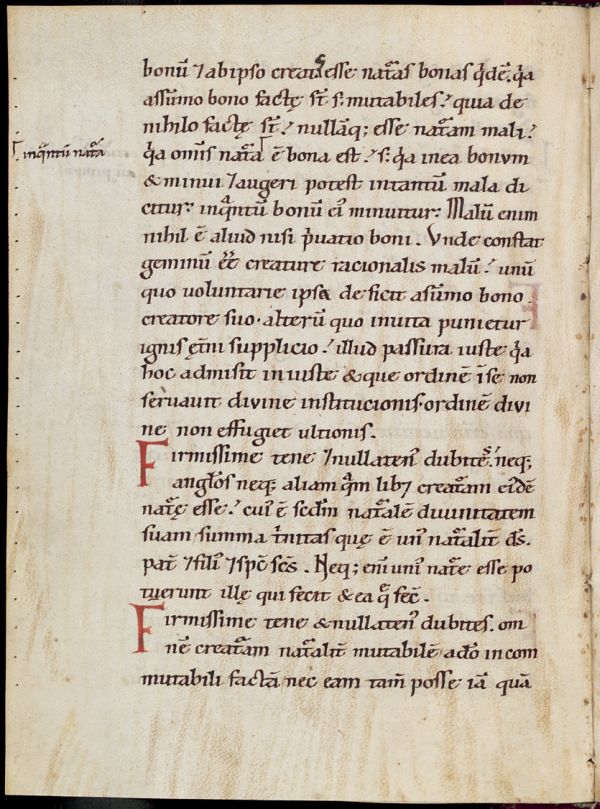 bonū ⁊ ab ipso creatas esse naturas bonas qͥdē. qͥa
a sūmo bono factę st̄ s; mutabiles. quia de
nihilo factę st̄. nullāq; esse natͣam mali.
ꝉ. inqͣntū natͣa
qͥa om̄is natͣa ē bona est. s; qͥa in ea bonum
& minui ⁊ augeri potest in tantū mala di
citur. inqͣntū bonū eiꝰ minuitur. Malū enim
nihil ē aliud nisi pͥuatio boni. Vnde constat
geminū eē creature racionalis malū. unū
quo voluntarie ipsa deficit a sūmo bono
creatore suo. alterū quo inuita punietur
ignis ęt̄ni supplicio. illud passura iuste qͥa
hoc admisit iniuste & que ordinē ī se non
seruauit divine institucionis. ordinē divi
ne non effugiet ultionis.
Firmissime tene ⁊ nullatenꝰ dubites. neq;
anglos neq; aliam qͣm lib⁊ creatͣam eiꝰdē
natͣę esse. cuiꝰ ē scd̄m natͣalē divinitatem
suam summa tͥnitas quę ē unꝰ natͣalit̄ ds̄.
pat̄ ⁊ filiꝰ ⁊ spc̄ scs̄. Neq; eni uniꝰ natͣe esse po
tuerunt ille qui fecit & ea qͣe fec̄.
Firmissime tene & nullatenꝰ dubites. om
nē creatͣam natͣalit̄ mutabilē a dō incom
mutabili factā nec eam tam̄ posse iā quā